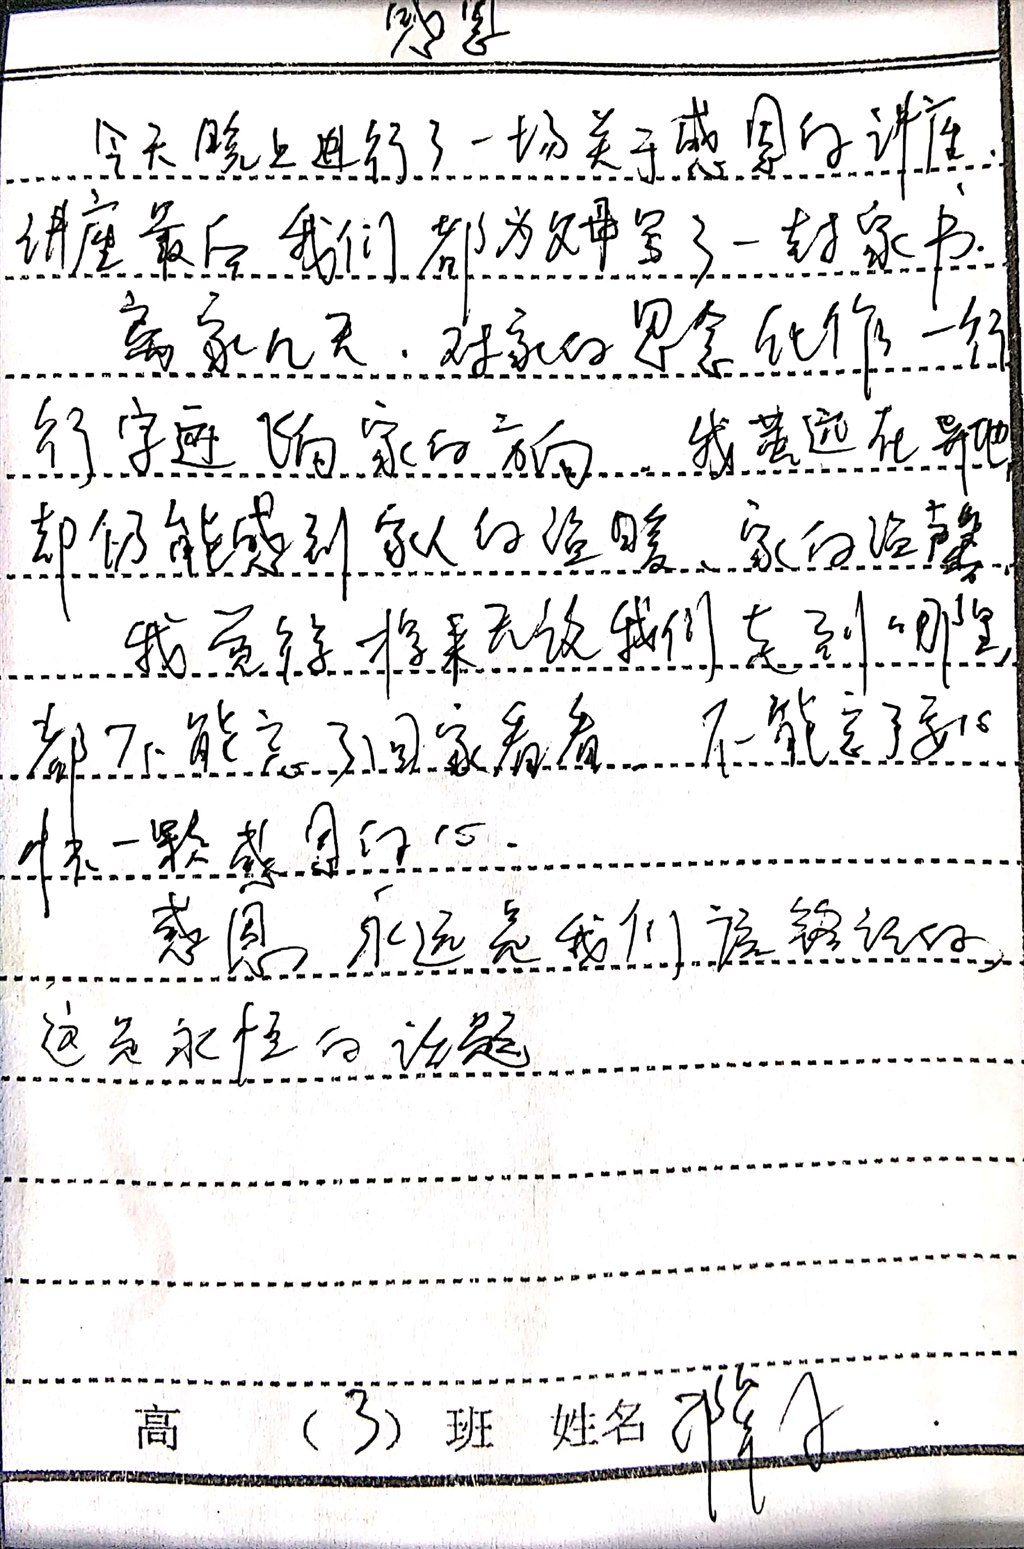 感恩
今天晚上进行了一场关于感恩的讲座.
讲座最后我们都为父母写了一封家书.
离家几天.对家的思念化作一行
行字迹飞向家的方向.我虽远在异地
却仍能感到家人的温暖、家的温馨.
我觉得将来无论我们走到哪里,
都不能忘了回家看看.不能忘了要心
怀一颗感恩的心.
感恩,永远是我们该铭记的,
这是永恒的话题
高 (3)班 姓名